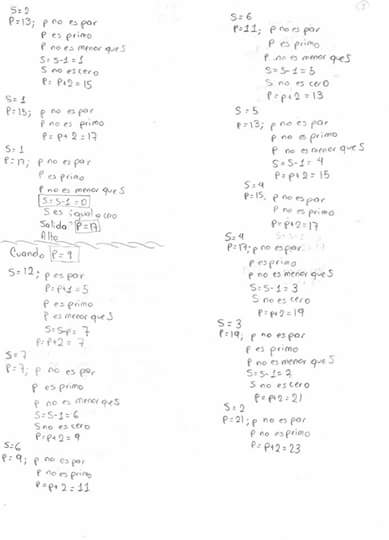 S=2
P=13; p no es par
P es primo
P no es menor que S
S=S-1=1
S no es cero
P=P+2=15
S=1
P=15; p no es par
P no es primo
P=P+2=17
S=1
P=17; p no es par
P es primo
P no es menor que S
S=S-1=0
S es igual a cero
Salida P=17
Alto
Cuando P=9
S=12; p es par
P=P+1=5
P es primo
P es menor que S
S=S-P=7
P=P+2=7
S=7
P=7; p no es par
P es primo
P no es menor que S
S=S-1=6
S no es cero
P=P+2=9
S=6
P=9; p no es par
P no es primo
P=P+2=11
S=6
P=11; p no es par
P es primo
P no es menor que S
S=S-1=5
S no es cero
P=P+2=13
S=5
P=13; p no es par
P no es primo
P no es menor que S
S=S-1=4
P=P+2=15
S=4
P=15; p no es par
P no es primo
P=P+2=17
S=4
P=17; p no es par
P es primo
P no es menor que S
S=S-1=3
S no es cero
P=P+2=19
S=3
P=19; p no es par
P es primo
P no es menor que S
S=S-1=2
S no es cero
P=P+2=21
S=2
P=21; p no es par
P no es primo
P=P+2=23